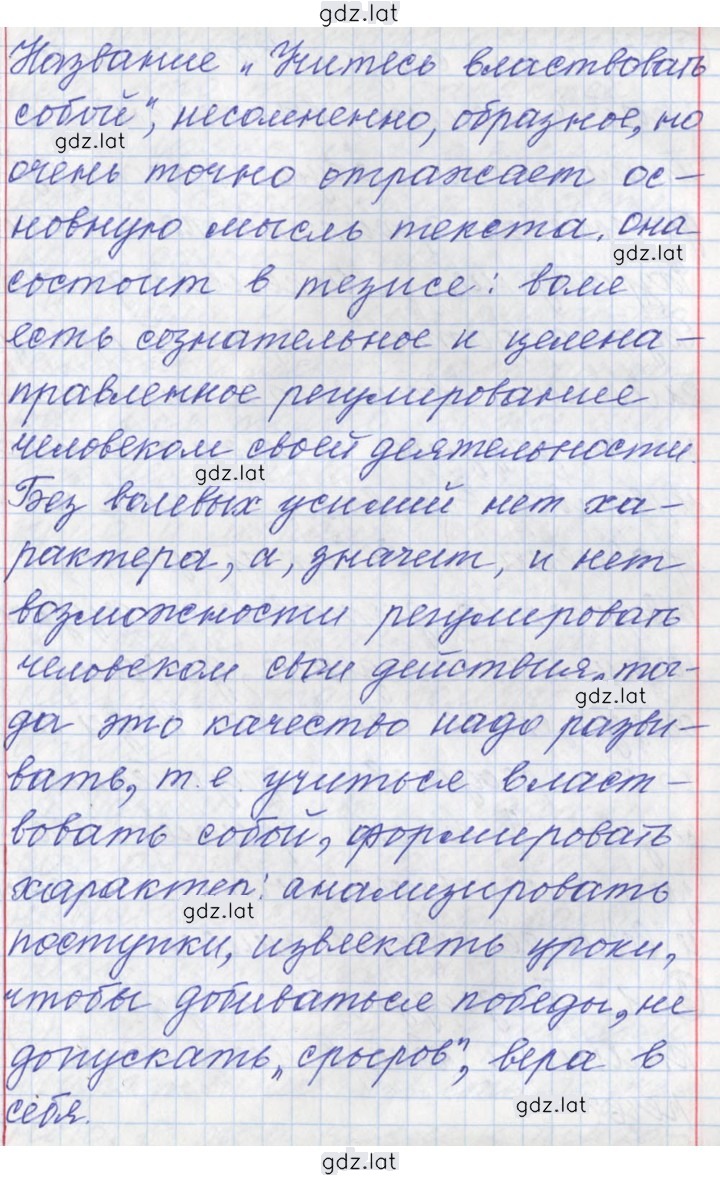 gdz.lat
Название „Учитесь властвовать
собой", несомненно, образное, но
gdz.lat
очень точно отражает ос-
новную мысль текста. Она
gdz.lat
состоит в тезисе: воля
есть сознательное и целена-
правленное регулирование
человеком своей деятельности.
gdz.lat
Без волевых усилий нет ха-
рактера, а, значит, и нет
возможности регулировать
человеком свои действия. То-
gdz.lat
да это качество надо разви-
вать, т.е. учиться власт-
вовать собой, формировать
характер: анализировать
gdz.lat
поступки, извлекать уроки,
чтобы добиваться победы, не
допускать „срывов", вера в
себя.
gdz.lat
gdz.lat